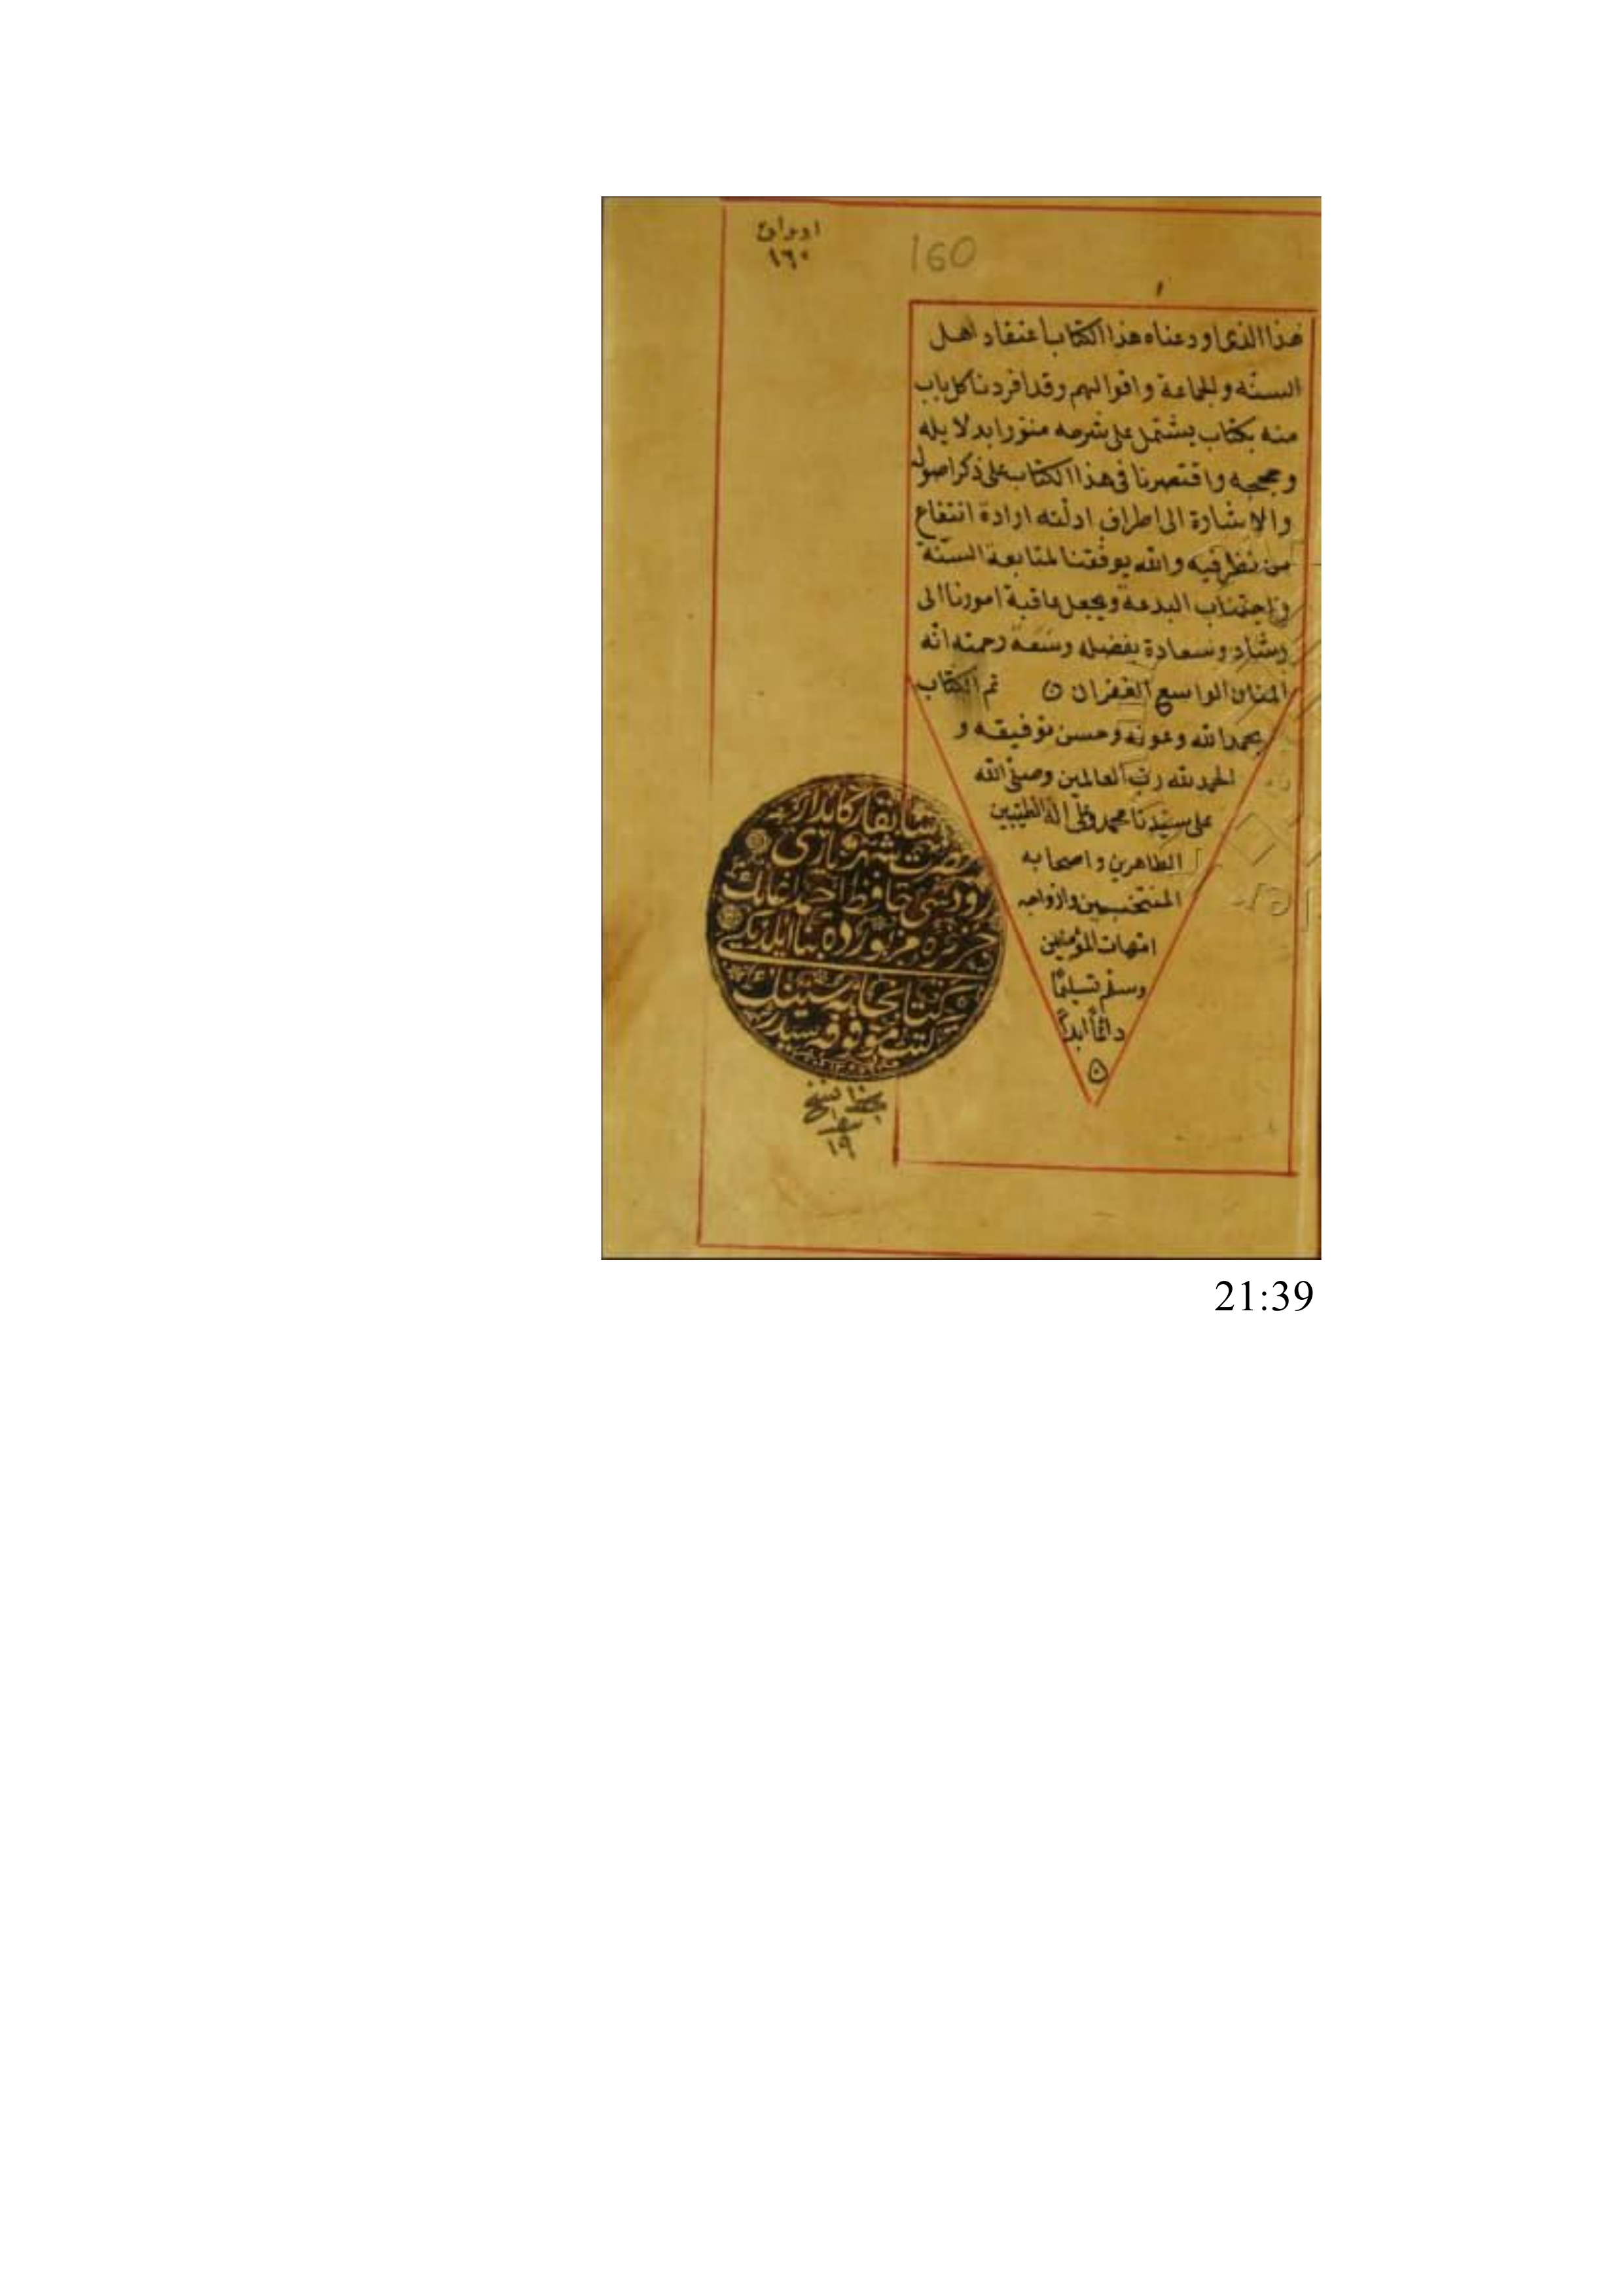 اوراق
١٦٠
160
هذا الذى اودعناه هذا الكتاب اعتقاد اهل
السنه والجماعة واقوالهم وقد افردنا كل باب
منه بكتاب يشتمل على شرحه منورا بدلايله
وحججه واقتصرنا فى هذا الكتاب على ذكر اصوله
والاشارة الى اطراف ادلته ارادة انتفاع
من نظر فيه والله يوفقنا لمتابعة السنّة
واجتناب البدعة ويجعل عاقبة امورنا الى
رشاد وسعادة بفضله وسعة رحمته انّه
المنان الواسع الغفران ٥ تم الكتاب
بحمد الله وعونه وحسن توفيقه و
الحمد لله ربّ العالمين وصلّى الله
على سيّدنا محمد وعلى اله الطيبين
الطاهرين واصحابه
المنتخبين وازواجه
امّهات المؤمنين
وسلّم تسليمًا
دائمًا ابدًا
٥
حافظ احمد اغانك
١٩
21:39